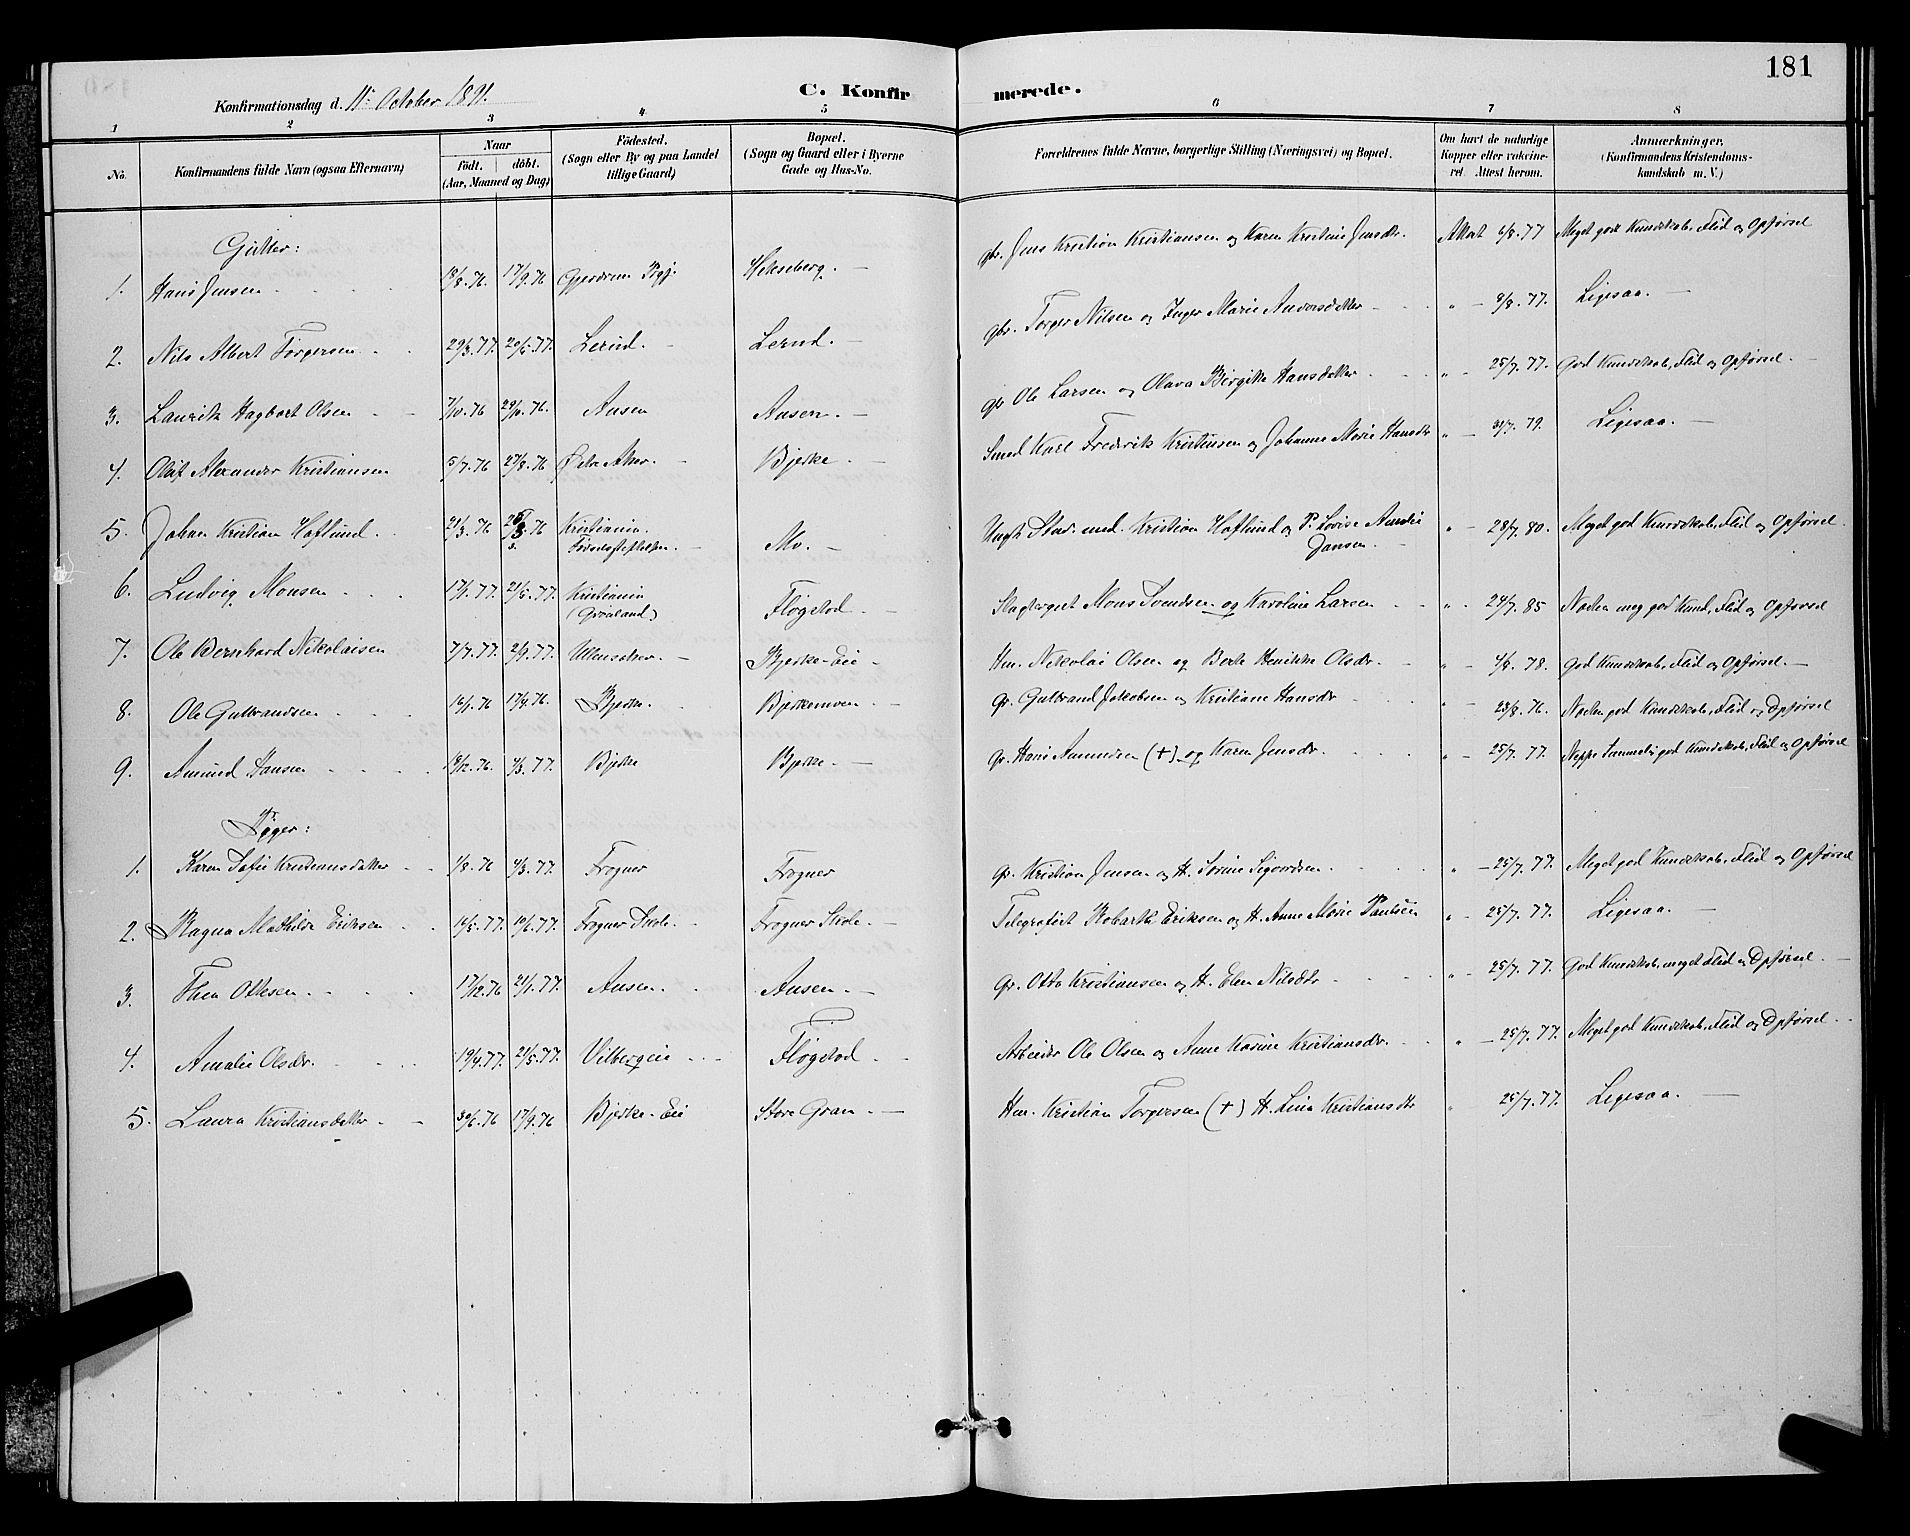 181
Konfirmationsdag d. 11te October 1891.
C. Konfirmerede.
1 2 3 4 5 6 7 8
No. Konfirmandens fulde Navn (ogsaa Efternavn) Naar födt. döbt. (Aar, Maaned og Dag) Födested. (Sogn eller By og paa Landet tillige Gaard) Bopæl. (Sogn og Gaard eller i Byerne Gade og Hus-No. Forældrenes fulde Navne, borgerlige Stilling (Næringsvei) og Bopæl. Om havt de naturlige Kopper eller vakcineret. Attest herom. Anmærkninger. (Konfirmandens Kristendomskundskab m. V.)
Gutter:
1. Hans Jensen 18/8. 76. 17/9. 76 Gjerdrum Pgj. Hekseberg. — gbr. Jens Kristian Kristiansen og Karen Kristine Jensdr. Attest 6/8. 77 Meget god Kundskab, Flid og Opførsel
2. Nils Albert Torgersen 29/3. 77. 20/5. 77. Lerud. — Lerud. — gbr. Torger Nilsen og Inger Marie Andersdatter " — 8/8. 77. Ligesaa. —
3. Laurits Hagbart Olsen 7/10. 76 29/10. 76. Ausen Ausen. — gbr Ole Larsen og Olava Birgitte Hansdatter " — 25/7. 77. God Kundskab, Flid og Opførsel. —
4. Olaf Alexander Kristiansen 5/7. 76 27/8. 76 Østre Aker. — Bjerke. Smed Karl Frederik Kristiansen og Johanne Marie Hansdr " — 31/7. 79. Ligesaa. —
5. Johan Kristian Hoflund. 21/3. 76 76 Kristiania. Fødselsstiftelsen. — Mo. — Ungk. Stud. med. Kristian Hoflund og P. Lovise Amalie Jansen. " — 28/7. 80. Meget god Kundskab, Flid og Opførsel.
6. Ludvig Monsen 17/1. 77. 21/5. 77. Kristiania (Grønland) Fløgstad. Mons Svendsen og Karoline Larsen " — 24/7. 85 Noken meg god Kund, Flid og Opførsel
7. Ole Bernhard Nikolaisen 7/7. 77. 2/9. 77. Ullensaker. — Bjerke-Eie — Hm. Nikolai Olsen og Berte Henrikke Olsdr. " — 4/8. 78. God Kundskab, Flid og Opførsel. —
8. Ole Gulbrandsen 16/1. 76 17/4. 76. Bjerke. Bjerkemoen. — gbr. Gulbrand Jakobsen og Kristiane Hansdr " — 23/8. 76. Noken god Kundskab, Flid og Opførsel
9. Amund Hansen 18/12. 76. 4/3. 77. Bjerke Bjerke. — gbr. Hans Amundsen (+) og Karen Jensdr. " — 25/7. 77. Neppe Temmelig god Kundskab, Flid og Opførsel
Piger:
1. Karen Sofie Kristiansdatter 1/8. 76 4/3. 77. Frogner Frogner gbr. Kristian Jensen og H. Sørine Sigvardsen " — 25/7. 77. Meget god Kundskab, Flid og Opførsel
2. Ragna Mathilde Eriksen 16/5. 77. 10/6. 77. Frogner Skole. — Frogner Skole. — Telegrafist Robarth Eriksen og H. Anne Marie Paulsen " — 25/7. 77. Ligesaa. —
3. Thea Ottesen 17/12. 76 21/1. 77. Ausen. Ausen. — gbr. Otto Kristiansen og H. Elen Nilsdtr " — 25/7. 77. God Kundskab, meget Flid og Opførsel. —
4. Amalie Olsdr. 19/4. 77. 21/5. 77. Vilbergeie Fløgstad. Arbeider Ole Olsen og Anne Karine Kristiansdr. " — 25/7. 77. Meget god Kundskab, Flid og Opførsel.
5. Laura Kristiansdatter 30/6. 76 17/9. 76 Bjerke-Eie Store Gran. — Hm. Kristian Torgersen (+) H. Lina Kristiansdtr " 25/7. 77. Ligesaa. —